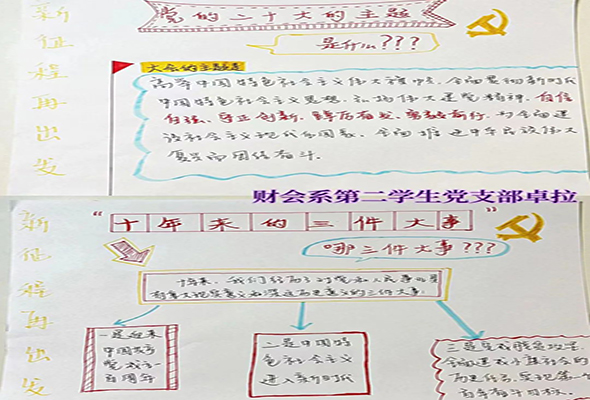 新征程再出发
党的二十大的主题
是什么???
大会的主题是
高举中国特色社会主义伟大旗帜,全面贯彻新时代
中国特色社会主义思想,弘扬伟大建党精神,自信
自强、守正创新,踔厉奋发、勇毅前行,为全面建
设社会主义现代化国家、全面推进中华民族伟大
复兴而团结奋斗.
财会系第二学生党支部卓拉
新征程再出发
"十年来的三件大事"
哪三件大事???
十年来,我们经历了对党和人民事业具
有重大现实意义和深远历史意义的三件大事.
一是迎来
中国共产
党成立一
百周年
二是中国特
色社会主义
进入新时代
三是完成脱贫攻坚、
全面建成小康社会的
历史任务,实现第一个
百年奋斗目标.